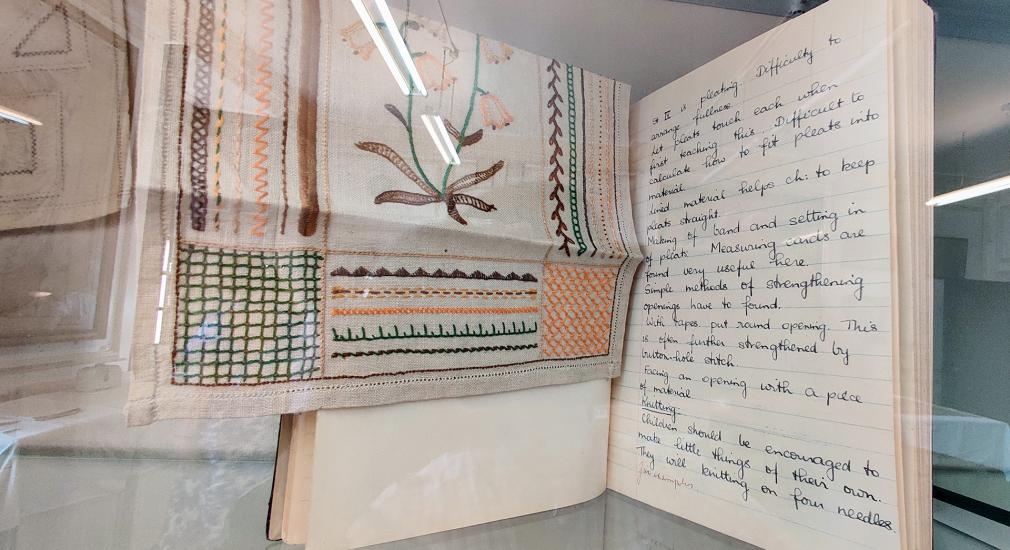 II is pleating. Difficulty to
arrange fullness.
Let pleats touch each when
first teaching this. Difficult to
calculate how to fit pleats into
material.
Lined material helps ch: to keep
pleats straight.
Making of band and setting in
of pleats. Measuring cards are
found very useful here.
Simple methods of strengthening
openings have to found.
With tapes put round opening. This
is often further strengthened by
button-hole stitch
Facing an opening with a piece
of material
Knitting:
Children should be encouraged to
make little things of their own.
They will knitting on four needles.